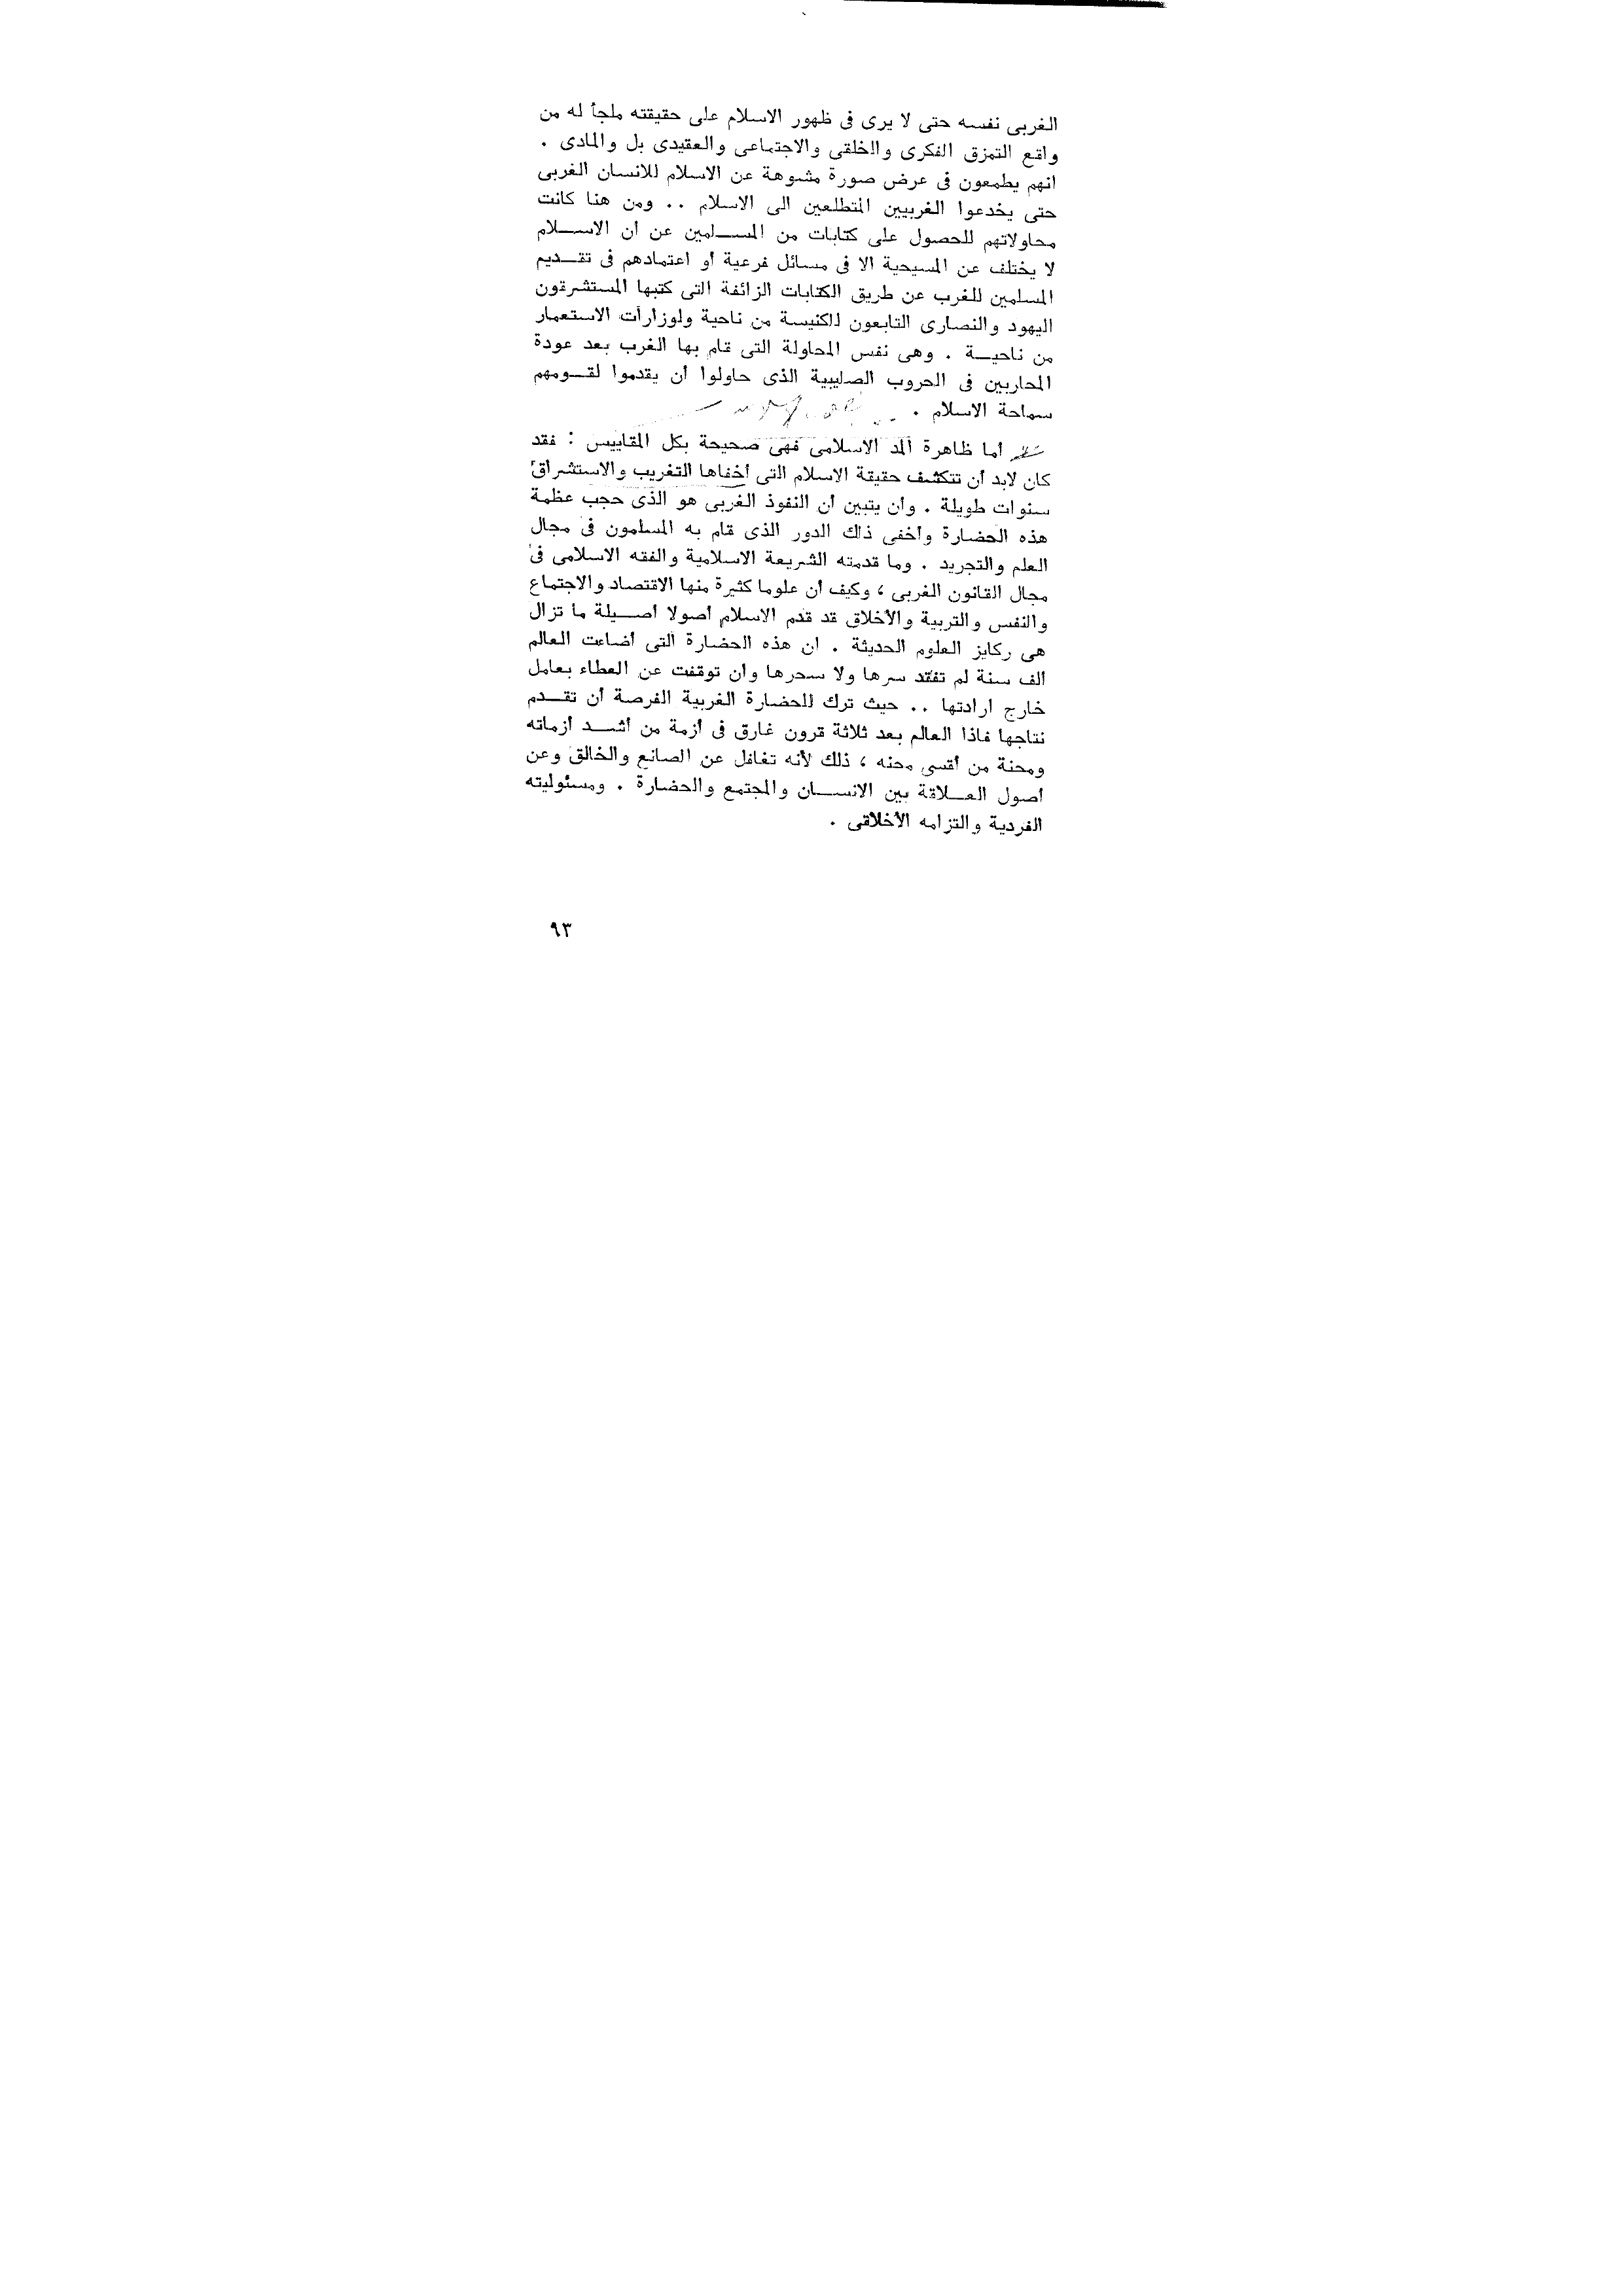 الغربى نفسه حتى لا يرى فى ظهور الاسلام على حقيقته ملجأ له من
واقع التمزق الفكرى والخلقى والاجتماعى والعقيدى بل والمادى .
انهم يطمعون فى عرض صورة مشوهة عن الاسلام للانسان الغربى
حتى يخدعوا الغربيين المتطلعين الى الاسلام .. ومن هنا كانت
محاولاتهم للحصول على كتابات من المسلمين عن أن الاسلام
لا يختلف عن المسيحية الا فى مسائل فرعية أو اعتمادهم فى تقديم
المسلمين للغرب عن طريق الكتابات الزائفة التى كتبها المستشرقون
اليهود والنصارى التابعون للكنيسة من ناحية ولوزارات الاستعمار
من ناحية . وهى نفس المحاولة التى قام بها الغرب بعد عودة
المحاربين فى الحروب الصليبية الذى حاولوا أن يقدموا لقومهم
سماحة الاسلام .
أما ظاهرة المد الاسلامى فهى صحيحة بكل المقاييس : فقد
كان لابد أن تتكشف حقيقة الاسلام التى أخفاها التغريب والاستشراق
سنوات طويلة . وأن يتبين أن النفوذ الغربى هو الذى حجب عظمة
هذه الحضارة وأخفى ذلك الدور الذى قام به المسلمون فى مجال
العلم والتجريد . وما قدمته الشريعة الاسلامية والفقه الاسلامى فى
مجال القانون الغربى ، وكيف أن علوما كثيرة منها الاقتصاد والاجتماع
والنفس والتربية والأخلاق قد قدم الاسلام أصولا أصيلة ما تزال
هى ركايز العلوم الحديثة . ان هذه الحضارة التى أضاءت العالم
ألف سنة لم تفقد سرها ولا سحرها وان توقفت عن العطاء بعامل
خارج ارادتها .. حيث ترك للحضارة الغربية الفرصة أن تقدم
نتاجها فاذا العالم بعد ثلاثة قرون غارق فى أزمة من أشد أزماته
ومحنة من أقسى محنه ، ذلك لأنه تغافل عن الصانع والخالق وعن
أصول العلاقة بين الانسان والمجتمع والحضارة . ومسئوليته
الفردية والتزامه الأخلاقى .
٩٣